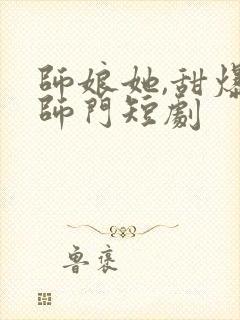 師娘她,甜爆
師門短劇
魯褒